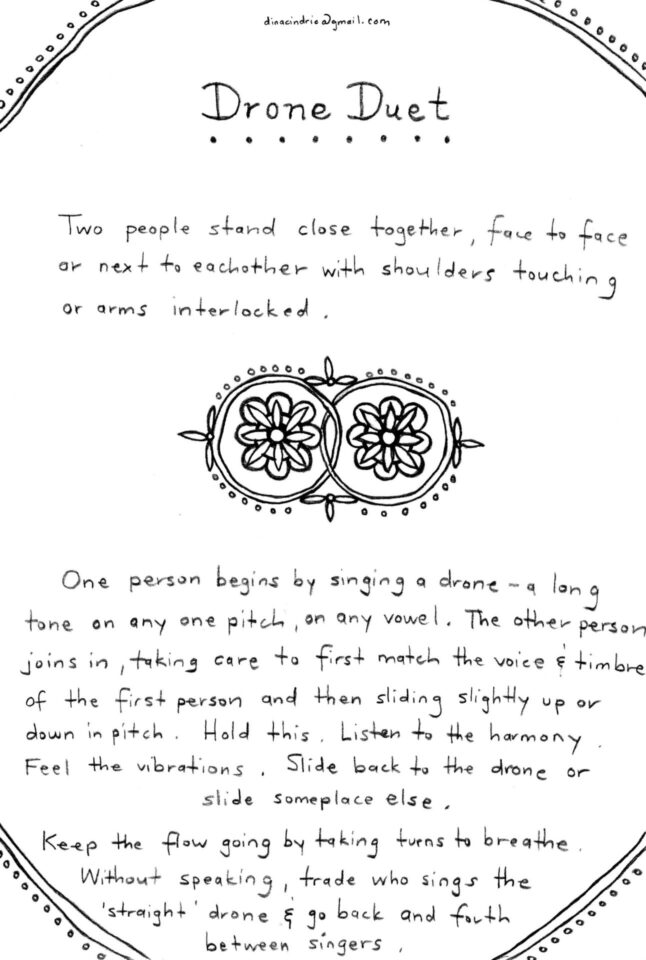 dinacindric@gmail.com
Drone Duet
Two people stand close together, face to face
or next to eachother with shoulders touching
or arms interlocked.
One person begins by singing a drone - a long
tone on any one pitch, on any vowel. The other person
joins in, taking care to first match the voice & timbre
of the first person and then sliding slightly up or
down in pitch. Hold this. Listen to the harmony.
Feel the vibrations. Slide back to the drone or
slide someplace else.
Keep the flow going by taking turns to breathe.
Without speaking, trade who sings the
'straight' drone & go back and forth
between singers.